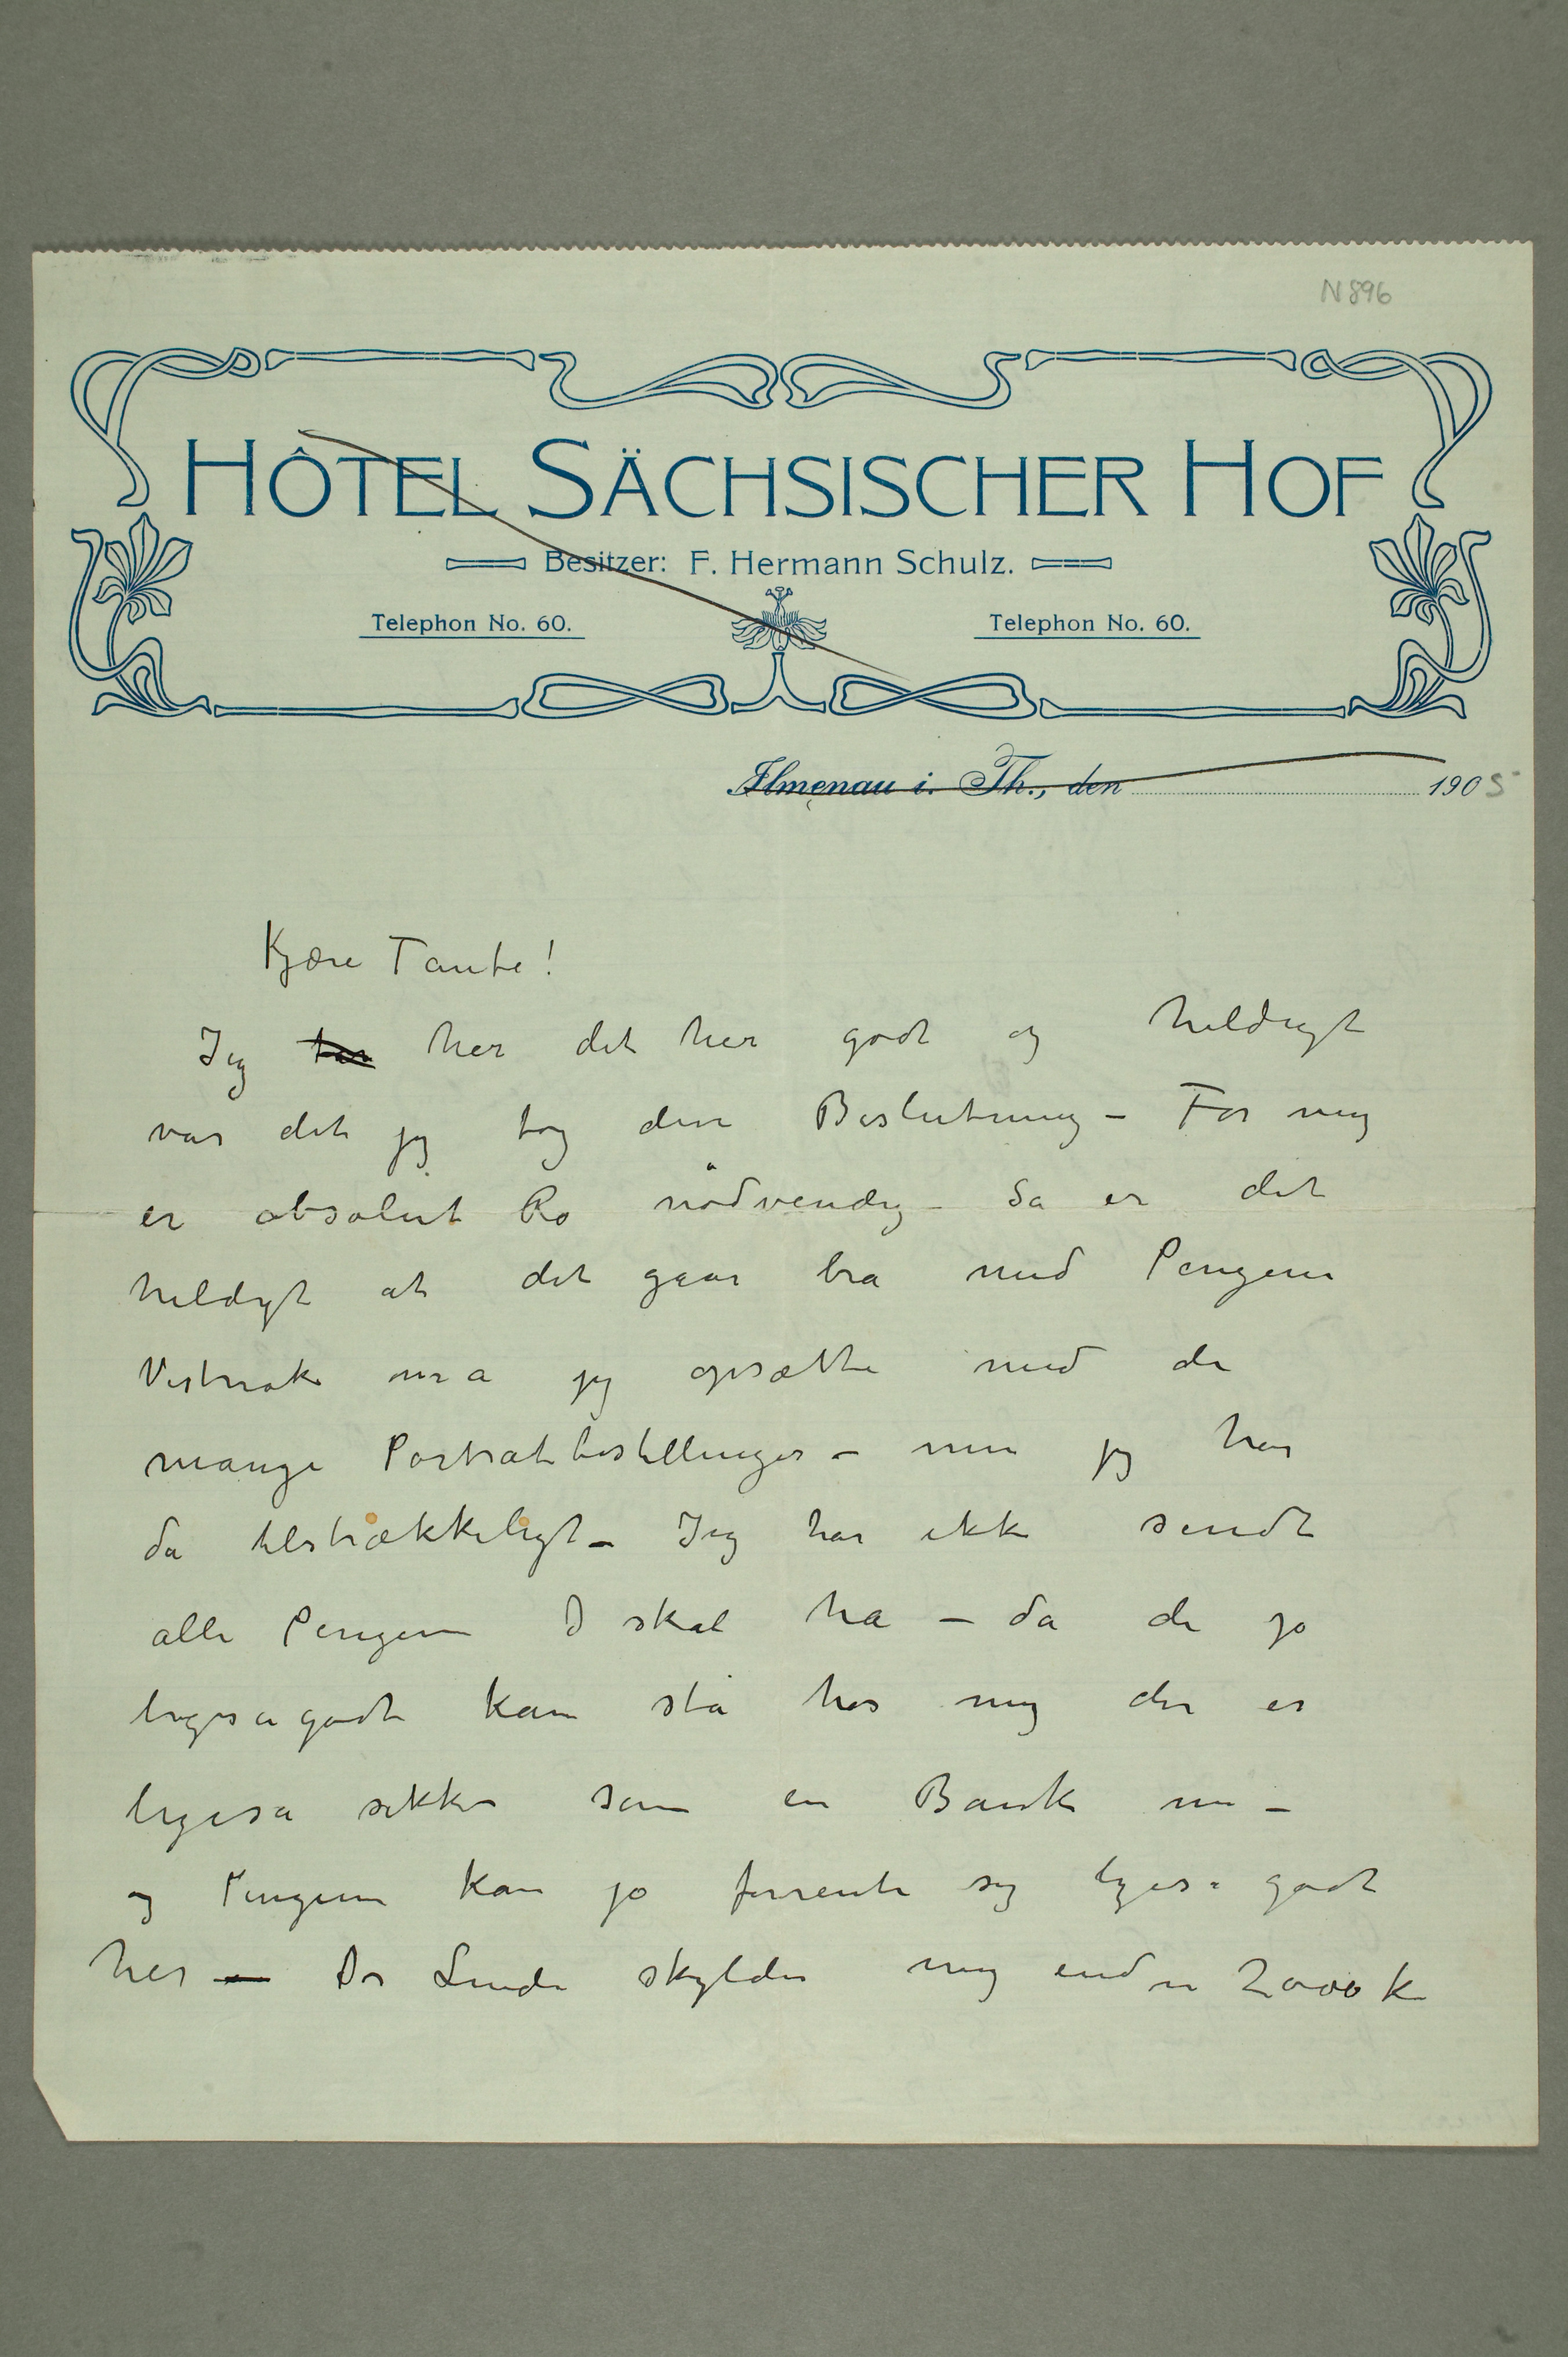 N 896
HÔTEL SÄCHSISCHER HOF
Besitzer: F. Hermann Schulz.
Telephon No. 60. Telephon No. 60.
Ilmenau i. Th., den 1905
Kjære Tante!
Jeg har det her godt og heldigt
var det jeg tog den Beslutning – For mig
er absolut Ro nødvendig – Så er det
heldigt at det gaar bra med Pengene
Vistnok må jeg opsætte med de
mange Portrætbestillinger – men jeg har
da tilstrækkeligt – Jeg har ikke sendt
alle Pengene I skal ha – da de jo
ligesa godt kan stå hos mig der er
ligesa sikker som en Bank nu –
og Pengene kan jo forrente sig ligesa godt
her – Dr Linde skylder mig endnu 2000 k